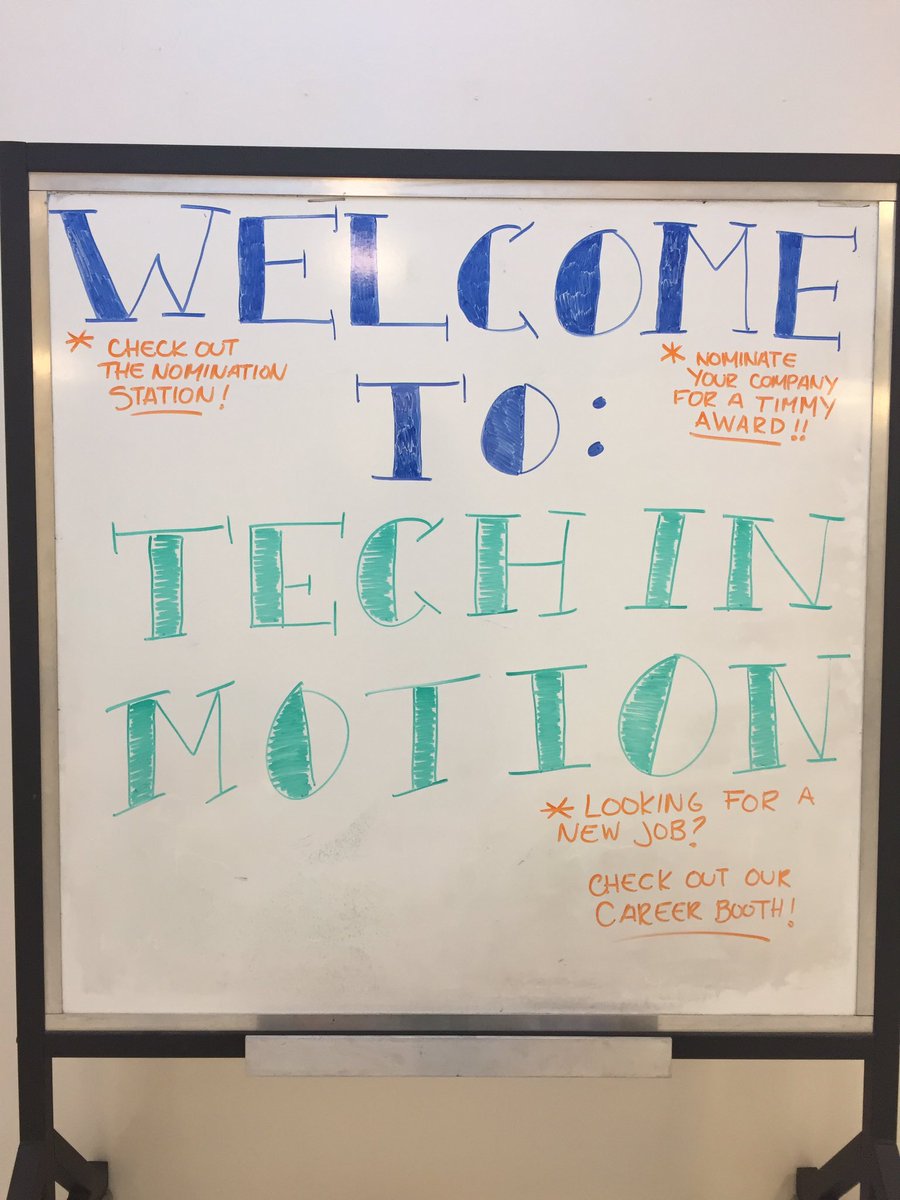 WELCOME
* CHECK OUT
THE NOMINATION
STATION!
* NOMINATE
YOUR COMPANY
FOR A TIMMY
AWARD!!
TO:
TECH IN
MOTION
* LOOKING FOR A
NEW JOB?
CHECK OUT OUR
CAREER BOOTH!